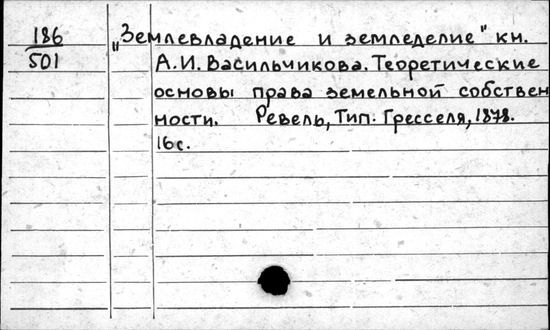 186
501
„Землевладение и земледелие" кн.
А.И. Васильчикова. Теоретические
основы права земельной собствен
ности. Ревель, Тип. Гресселя, 1878.
16с.